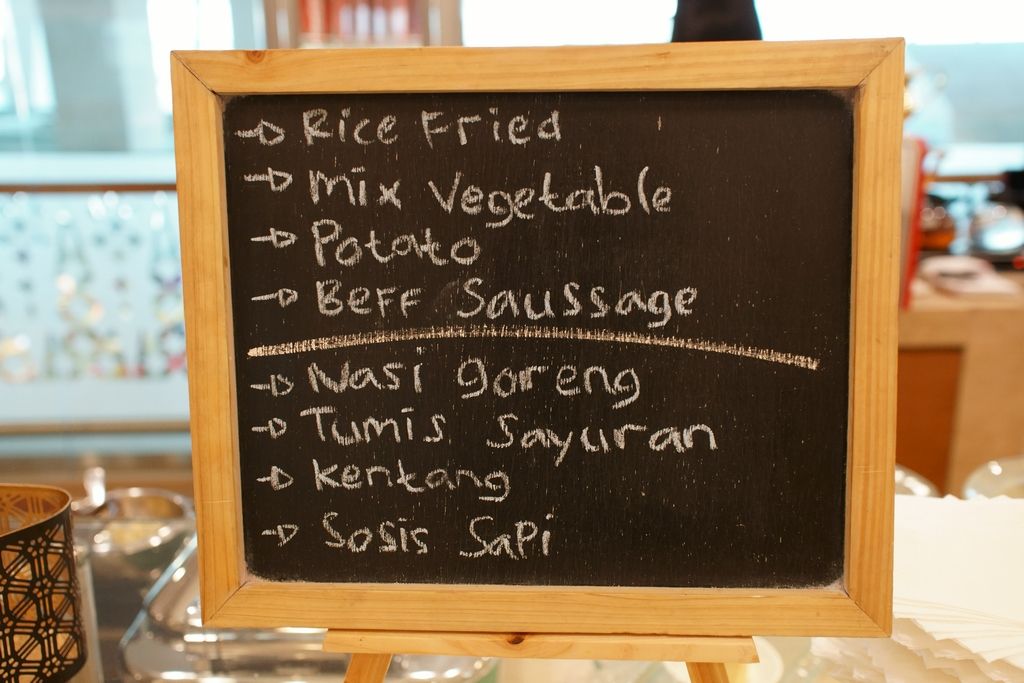 → Rice Fried
→ Mix Vegetable
→ Potato
→ Beff Saussage
→ Nasi goreng
→ Tumis Sayuran
→ Kentang
→ Sosis Sapi